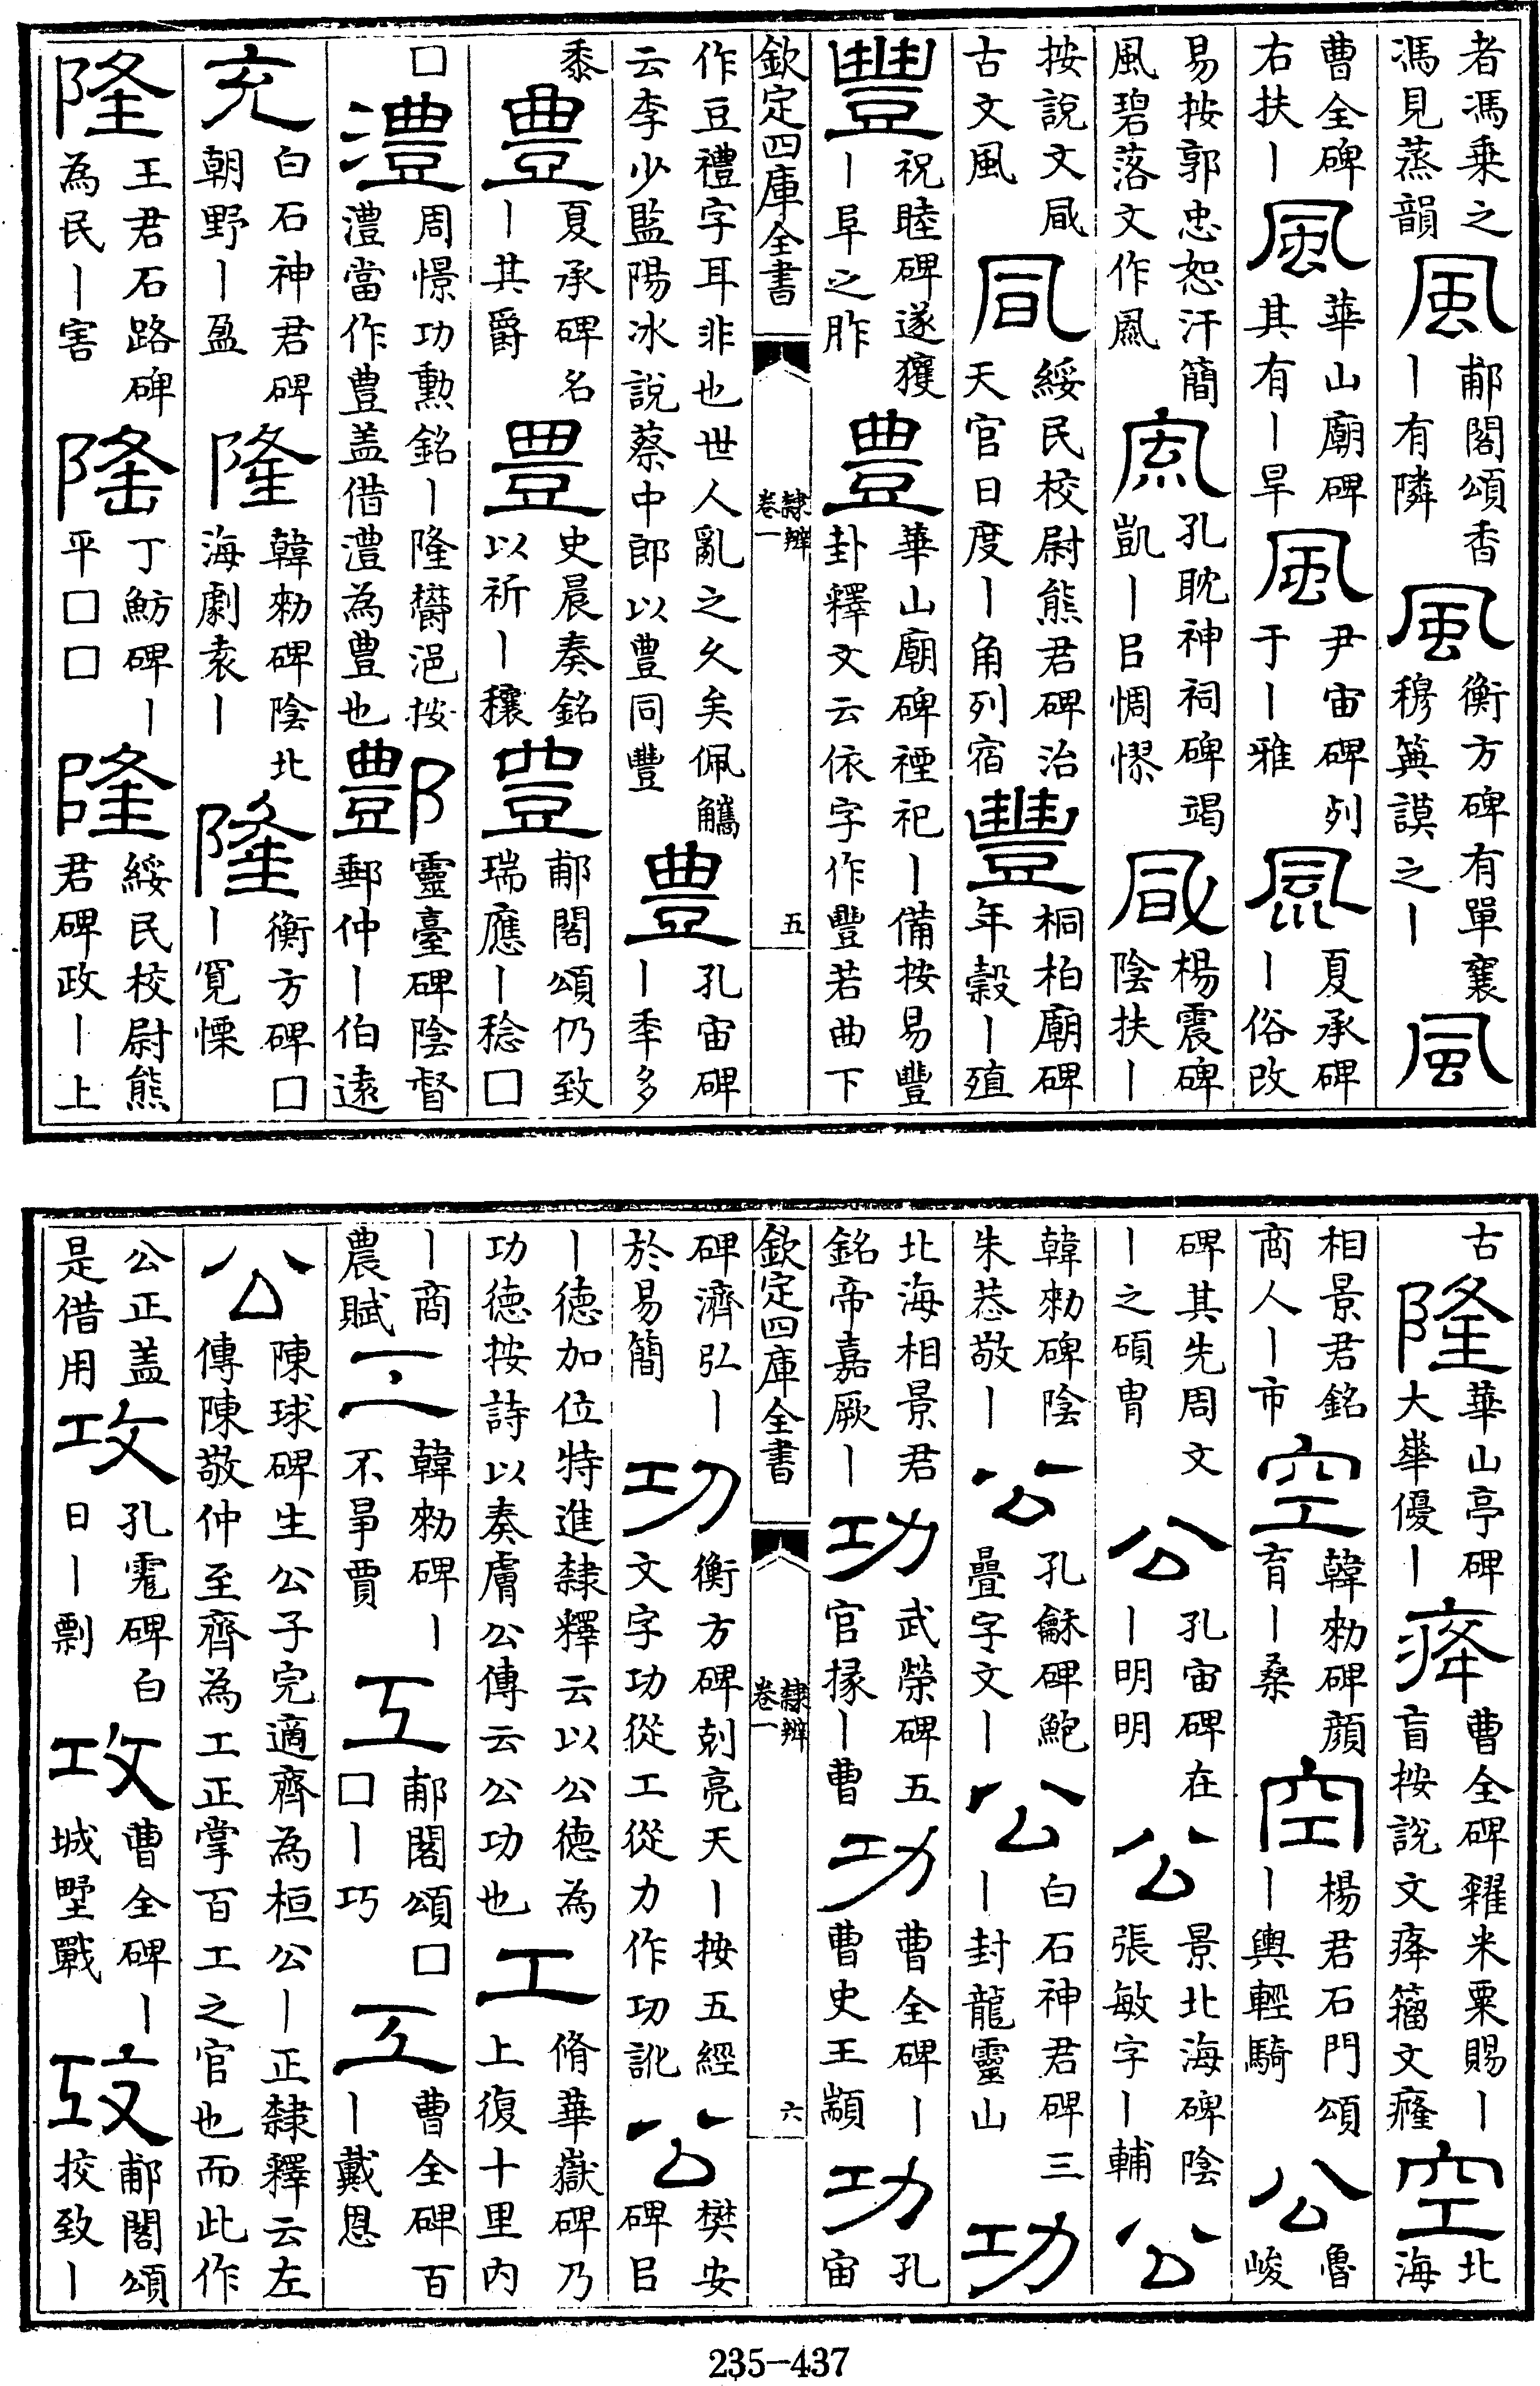 者馮乗之馮見蒸韻風郙閣頌香丨有隣風衡方碑有單襄穆䇿謨之丨風
曹全碑右扶丨風華山廟碑其有丨旱風尹宙碑列于丨雅風夏承碑丨俗改
易按郭忠恕汗簡風碧落文作凬孔耽神祠碑竭凱丨㠯惆悷楊震碑陰扶丨
按說文凬古文風綏民校尉熊君碑治天官日度丨角列宿豐桐柏廟碑年糓丨殖
豐祝睦碑遂獲丨阜之胙豊華山廟碑禋祀丨備按易豐卦釋文云依字作豐若曲下
欽定四庫全書 隸辨 卷一 五
作豆禮字耳非也世人亂之久矣佩觿云李少監陽冰說蔡中郎以豊同豐豊孔宙碑丨秊多
黍豊夏承碑名丨其爵豊史晨奏銘以祈丨穰豊郙閣頌仍致瑞應丨稔□
□澧周憬功勲銘丨隆欎浥按澧當作豊盖借澧為豊也酆靈臺碑陰督郵仲丨伯遠
充白石神君碑朝野丨盈隆韓勑碑陰北海劇袁丨隆衡方碑□丨寛慄
隆王君石路碑為民丨害隆丁魴碑丨平□□隆綏民校尉熊君碑政丨上
古隆華山亭碑大崋優丨㾐曹全碑糴米粟賜丨盲按說文㾐籀文癃空北海
相景君銘商人丨市空韓勑碑顔育丨桑空楊君石門頌丨輿輕騎公魯峻
碑其先周文丨之碩胄公孔宙碑在丨明明公景北海碑陰張敏字丨輔公
韓勑碑陰朱恭敬丨公孔龢碑鮑疊字文丨公白石神君碑三丨封龍靈山功
北海相景君銘帝嘉厥丨功武榮碑五官掾丨曹功曹全碑丨曹史王顓功孔宙
欽定四庫全書 隸辨 卷一 六
碑濟弘丨於易簡功衡方碑剋亮天丨按五經文字功從工從力作功訛公樊安碑㠯
丨德加位特進隸釋云以公德為功德按詩以奏膚公傳云公功也工脩華嶽碑乃上復十里内
丨商農賦工韓勑碑丨不爭賈工郙閣頌□□丨巧工曹全碑百丨戴恩
公陳球碑生公子完適齊為桓公丨正隸釋云左傳陳敬仲至齊為工正掌百工之官也而此作
公正盖是借用攻孔宙碑白日丨剽攻曹全碑丨城墅戰攻郙閣頌挍致丨
235-437